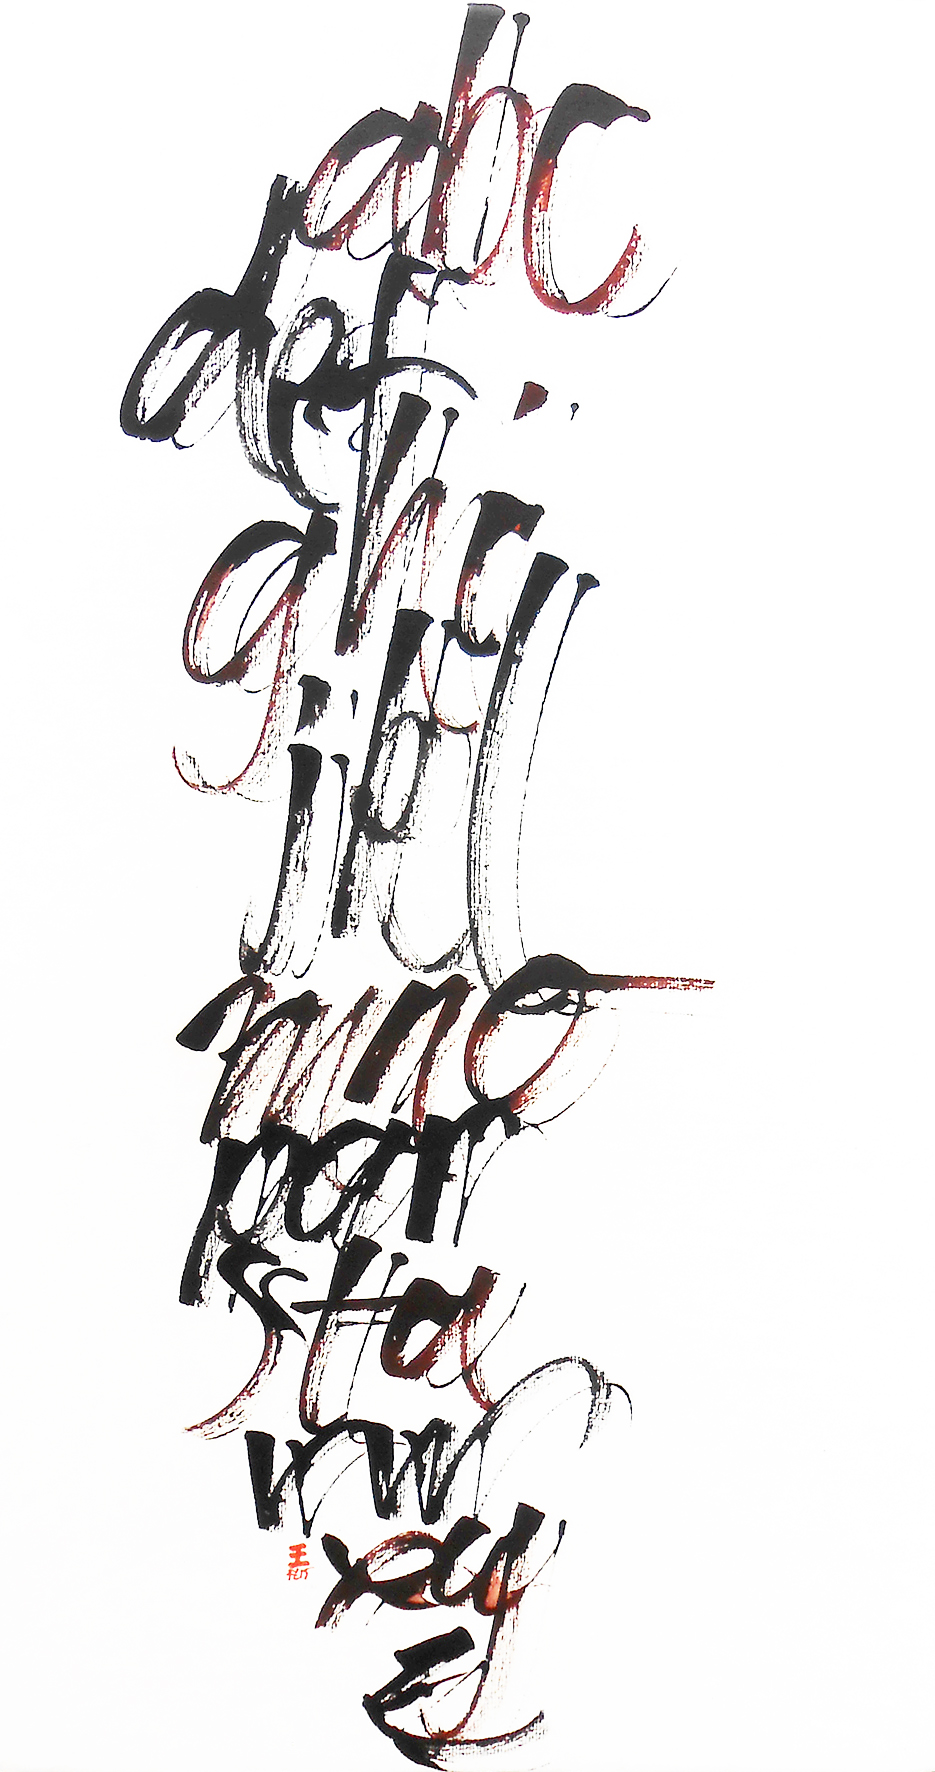 abc
def
ghi
jkl
mno
pqr
stu
vw
xy
z